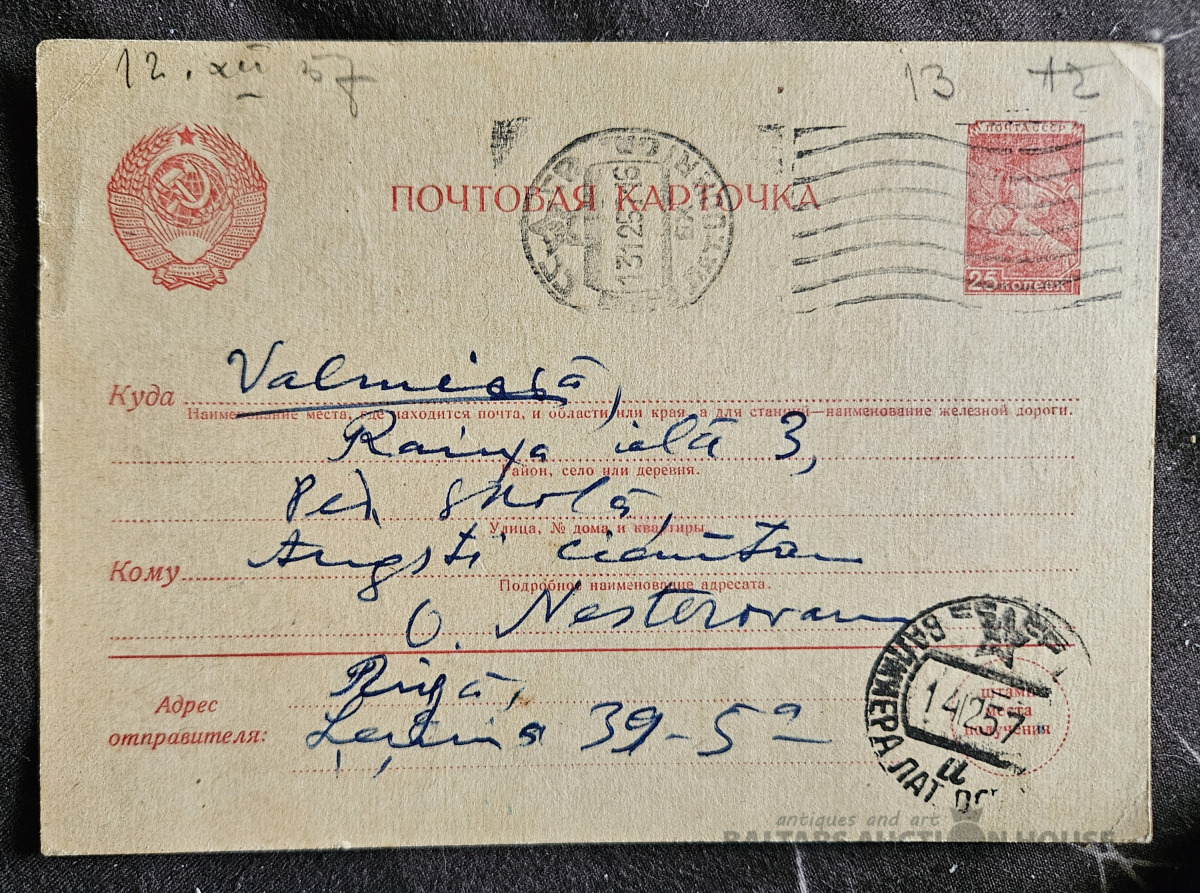 12. XII 57
13 12
ПОЧТА СССР
ПОЧТОВАЯ КАРТОЧКА
131257 16
25 копеек
Куда Valmierā,
Наименование места, где находится почта, и области или края, а для станций—наименование железной дороги.
Raiņa ielā 3,
Район, село или деревня.
Ped. skolā,
Улица, № дома и квартиры
Кому Augsti cienītam
Подробное наименование адресата.
O. Nesterovam
Rīgā,
Адрес
отправителя: Ļeņina 39-5a
ВАЛМИЕРА ЛАТ
141257
штамп
места
получения
antiques and art
BALTARS AUCTION HOUSE